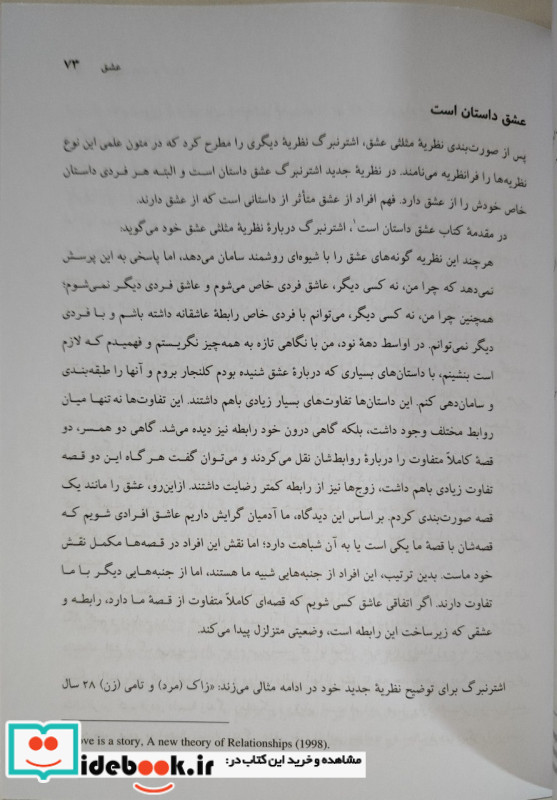 عشق ۷۳
عشق داستان است
پس از صورت‌بندی نظریهٔ مثلثی عشق، اشترنبرگ نظریهٔ دیگری را مطرح کرد که در متون علمی این نوع
نظریه‌ها را فرانظریه می‌نامند. در نظریهٔ جدید اشترنبرگ عشق داستان است و البته هر فردی داستان
خاص خودش را از عشق دارد. فهم افراد از عشق متأثر از داستانی است که از عشق دارند.
در مقدمهٔ کتاب عشق داستان است۱، اشترنبرگ دربارهٔ نظریهٔ مثلثی عشق خود می‌گوید:
هرچند این نظریه گونه‌های عشق را با شیوه‌ای روشمند سامان می‌دهد، اما پاسخی به این پرسش
نمی‌دهد که چرا من، نه کسی دیگر، عاشق فردی خاص می‌شوم و عاشق فردی دیگر نمی‌شوم؛
همچنین چرا من، نه کسی دیگر، می‌توانم با فردی خاص رابطهٔ عاشقانه داشته باشم و با فردی
دیگر نمی‌توانم. در اواسط دههٔ نود، من با نگاهی تازه به همه‌چیز نگریستم و فهمیدم که لازم
است بنشینم، با داستان‌های بسیاری که دربارهٔ عشق شنیده بودم کلنجار بروم و آنها را طبقه‌بندی
و سامان‌دهی کنم. این داستان‌ها تفاوت‌های بسیار زیادی باهم داشتند. این تفاوت‌ها نه تنها میان
روابط مختلف وجود داشت، بلکه گاهی درون خود رابطه نیز دیده می‌شد. گاهی دو همسر، دو
قصهٔ کاملاً متفاوت را دربارهٔ روابطشان نقل می‌کردند و می‌توان گفت هرگاه این دو قصه
تفاوت زیادی باهم داشت، زوج‌ها نیز از رابطه کمتر رضایت داشتند. ازاین‌رو، عشق را مانند یک
قصه صورت‌بندی کردم. بر اساس این دیدگاه، ما آدمیان گرایش داریم عاشق افرادی شویم که
قصه‌شان با قصهٔ ما یکی است یا به آن شباهت دارد؛ اما نقش این افراد در قصه‌ها مکمل نقش
خود ماست. بدین ترتیب، این افراد از جنبه‌هایی شبیه ما هستند، اما از جنبه‌هایی دیگر با ما
تفاوت دارند. اگر اتفاقی عاشق کسی شویم که قصه‌ای کاملاً متفاوت از قصهٔ ما دارد، رابطه و
عشقی که زیرساخت این رابطه است، وضعیتی متزلزل پیدا می‌کند.
اشترنبرگ برای توضیح نظریهٔ جدید خود در ادامه مثالی می‌زند: «زاک (مرد) و تامی (زن) ۲۸ سال
ove is a story, A new theory of Relationships (1998).
مشاهده و خرید این کتاب در:
idebook.ir